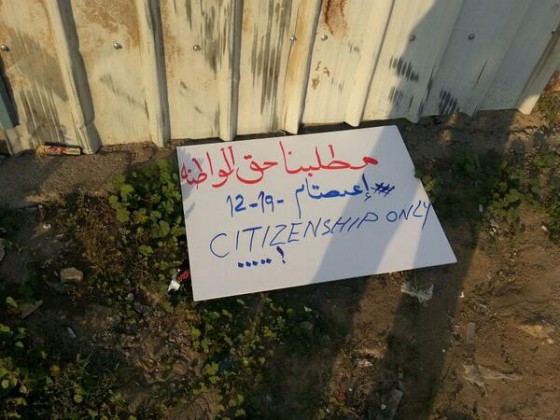 مطلبنا حق المواطنة
إعتصام -19-12
CITIZENSHIP ONLY
.....!